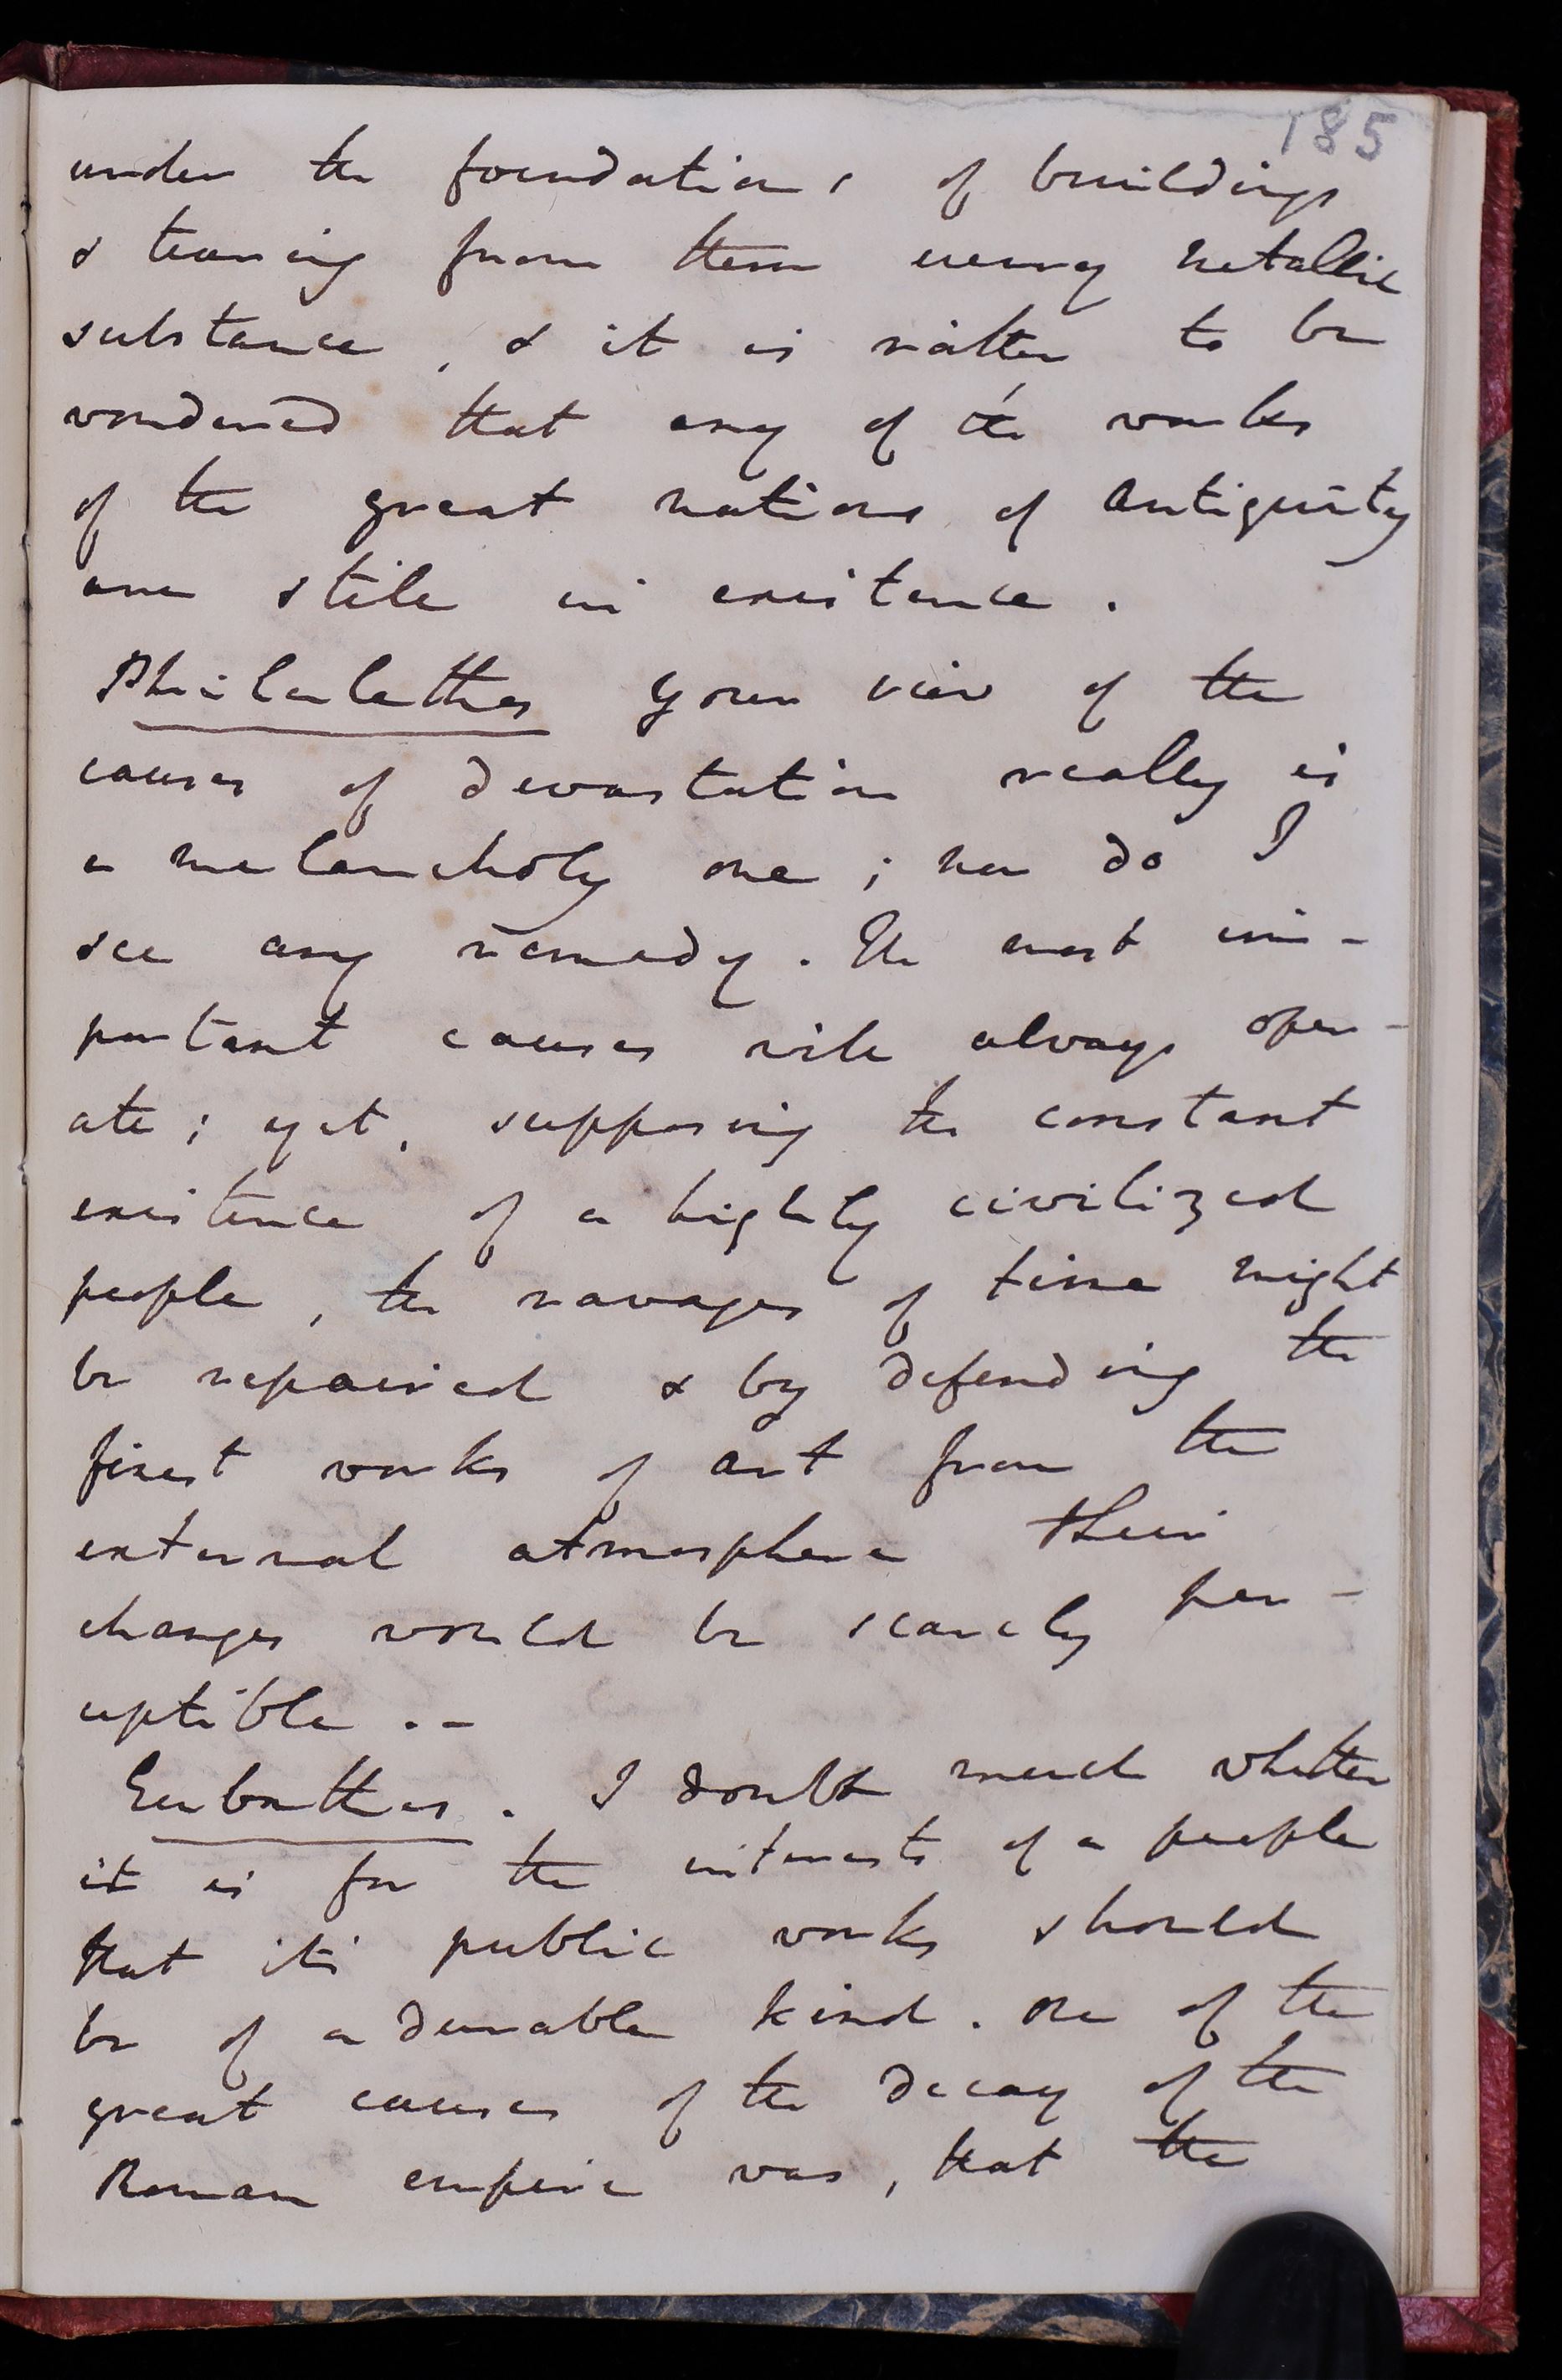 185
under the foundations of buildings
& tearing from them every metallic
substance, & it is rather to be
wondered that any of the works
of the great nations of antiquity
are still in existence.
Philalethes Your view of the
causes of devastation really is
a melancholy one; nor do I
see any remedy. The most im-
portant causes will always oper-
ate; yet, supposing the constant
existence of a highly civilized
people, the ravages of time might
be repaired & by defending the
finest works of art from the
external atmosphere their
changes would be scarcely per-
ceptible.-
Eubathes. I doubt much whether
it is for the interests of a people
that its public works should
be of a durable kind. One of the
great causes of the decay of the
Roman empire was, that the